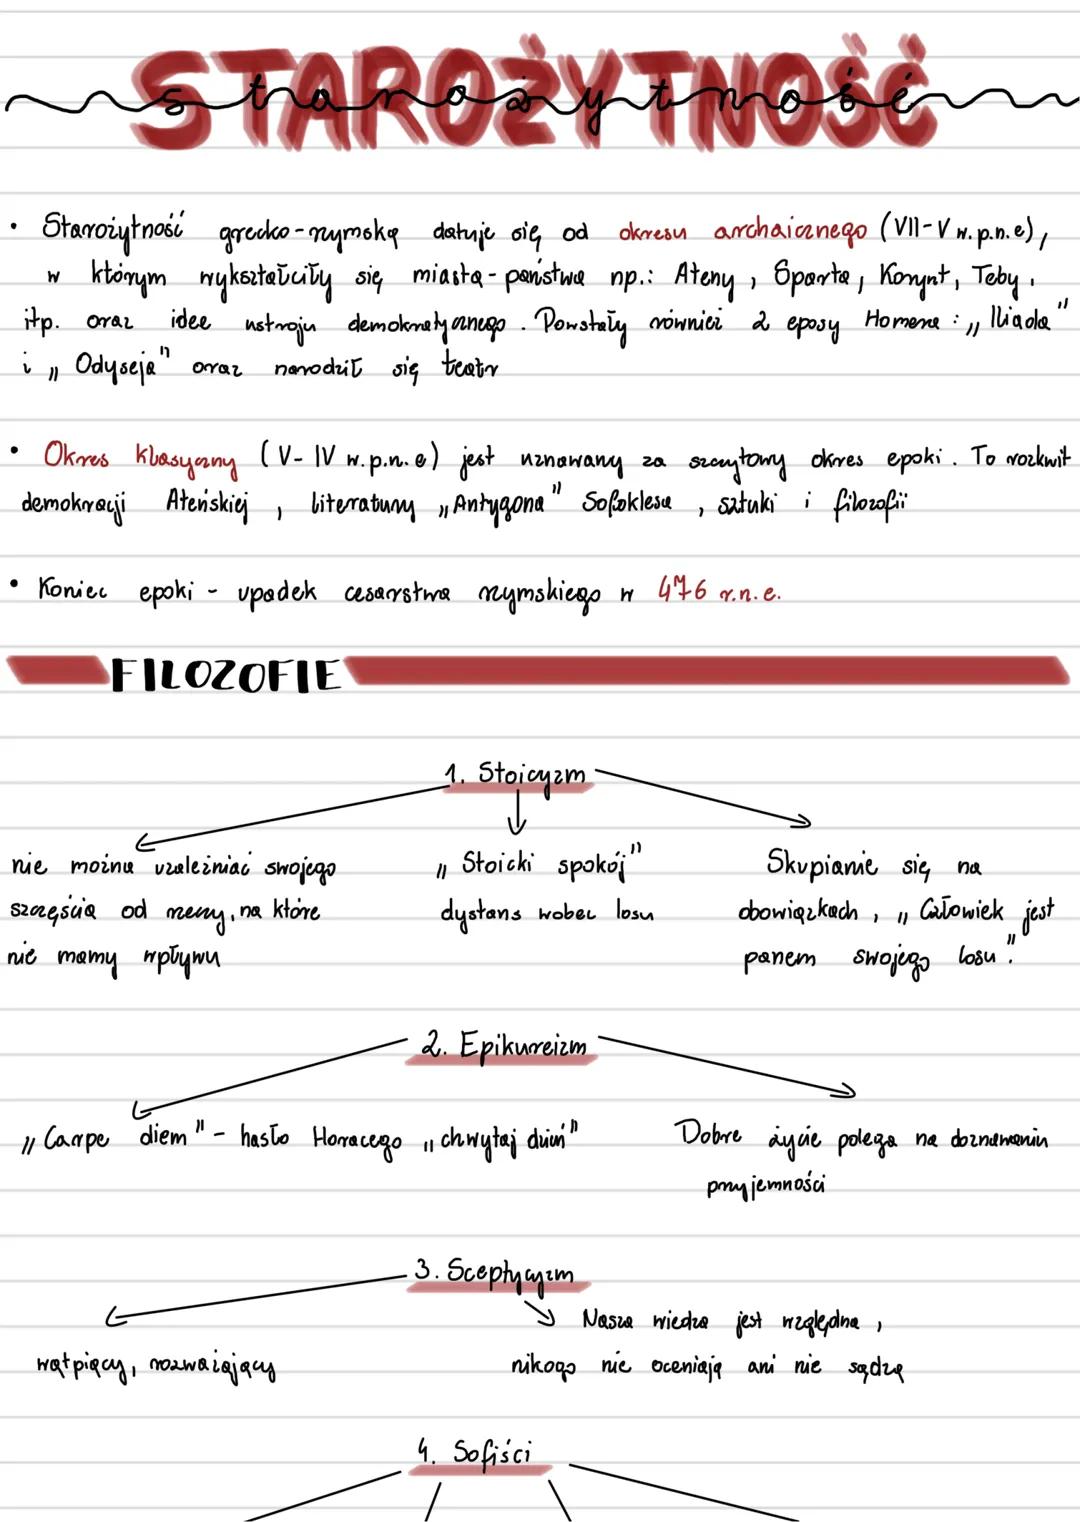 STAROŻYTNOŚĆ
starożytność
• Starożytność grecko-rzymską datuje się od okresu archaicznego (VII-V w.p.n.e),
w którym wykształciły się miasta-państwa np.: Ateny, Sparta, Korynt, Teby,
itp. oraz idee ustroju demokratycznego. Powstały również 2 eposy Homera: „Iliada"
i „Odyseja" oraz narodził się teatr
• Okres klasyczny (V- IV w.p.n.e) jest uznawany za szczytowy okres epoki. To rozkwit
demokracji Ateńskiej, literatury „Antygona" Sofoklesa, sztuki i filozofii
• Koniec epoki - upadek cesarstwa rzymskiego w 476 r.n.e.
FILOZOFIE
1. Stoicyzm
nie można uzależniać swojego
szczęścia od rzeczy, na które
nie mamy wpływu
„Stoicki spokój"
dystans wobec losu
Skupianie się na
obowiązkach, „Człowiek jest
panem swojego losu".
2. Epikureizm
„Carpe diem" - hasło Horacego „chwytaj dzień"
Dobre życie polega na doznawaniu
przyjemności
3. Sceptycyzm
wątpiący, rozważający
Nasza wiedza jest względna,
nikogo nie oceniają ani nie sądzą
4. Sofiści